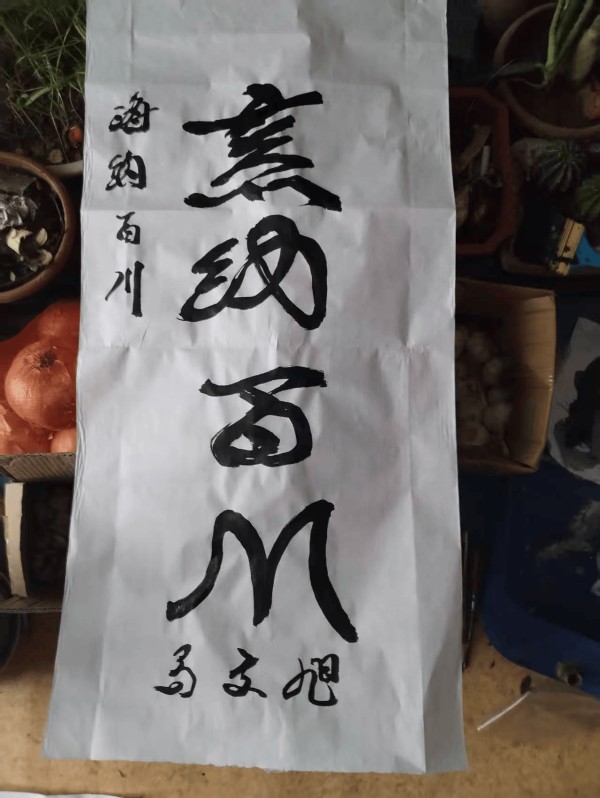 海纳百川
海纳百川
马文旭